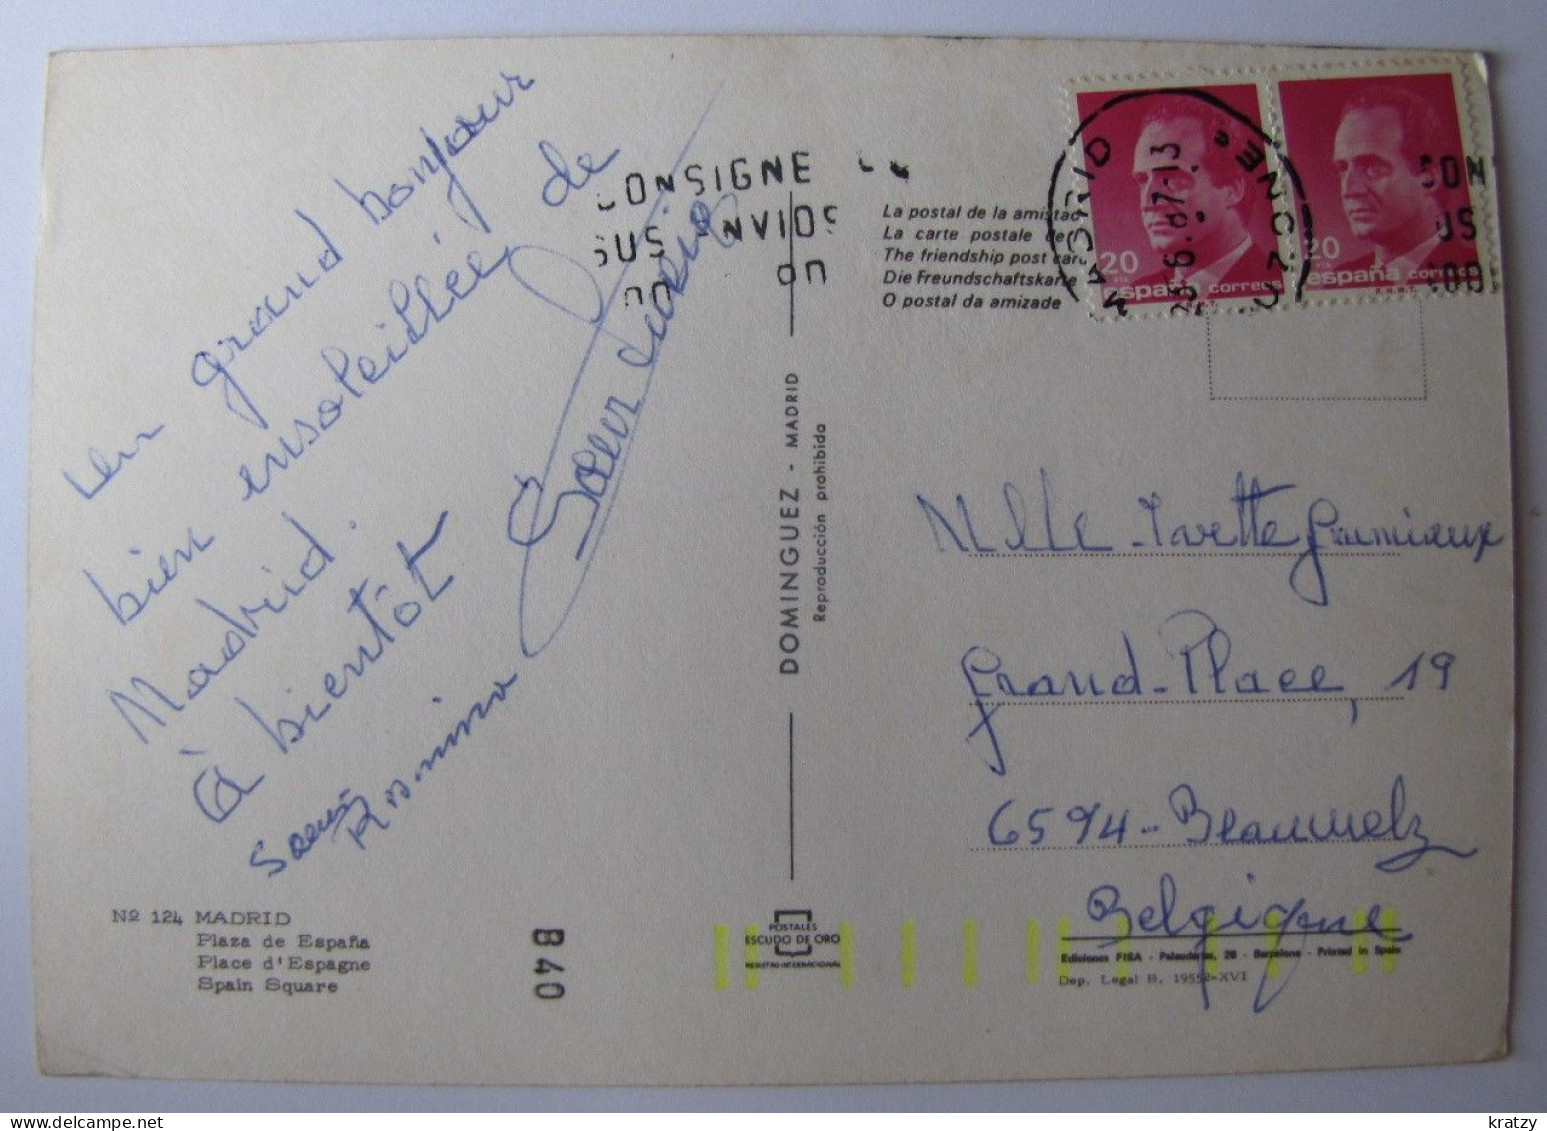 un grand bonjour
bien ensoleillée de
Madrid.
à bientôt
Soeur
Romina
Soeur
CONSIGNE
SUS ENVIOS
MADRID
87-13
20
españa correos
20
españa correos
CON
US
COD
La postal de la amistad
La carte postale de
The friendship post card
Die Freundschaftskarte
O postal da amizade
DOMINGUEZ - MADRID
Reproducción prohibida
Mlle Yvette Gremiaux
Grand-Place, 19
6594 - Beauwelz
Belgique
Nº 124 MADRID
Plaza de España
Place d'Espagne
Spain Square
B 40
POSTALES
ESCUDO DE ORO
REGISTRO INTERNACIONAL
Ediciones FISA - Palaudarias, 26 - Barcelona - Printed in Spain
Dep. Legal B. 19552-XVI
kratzy